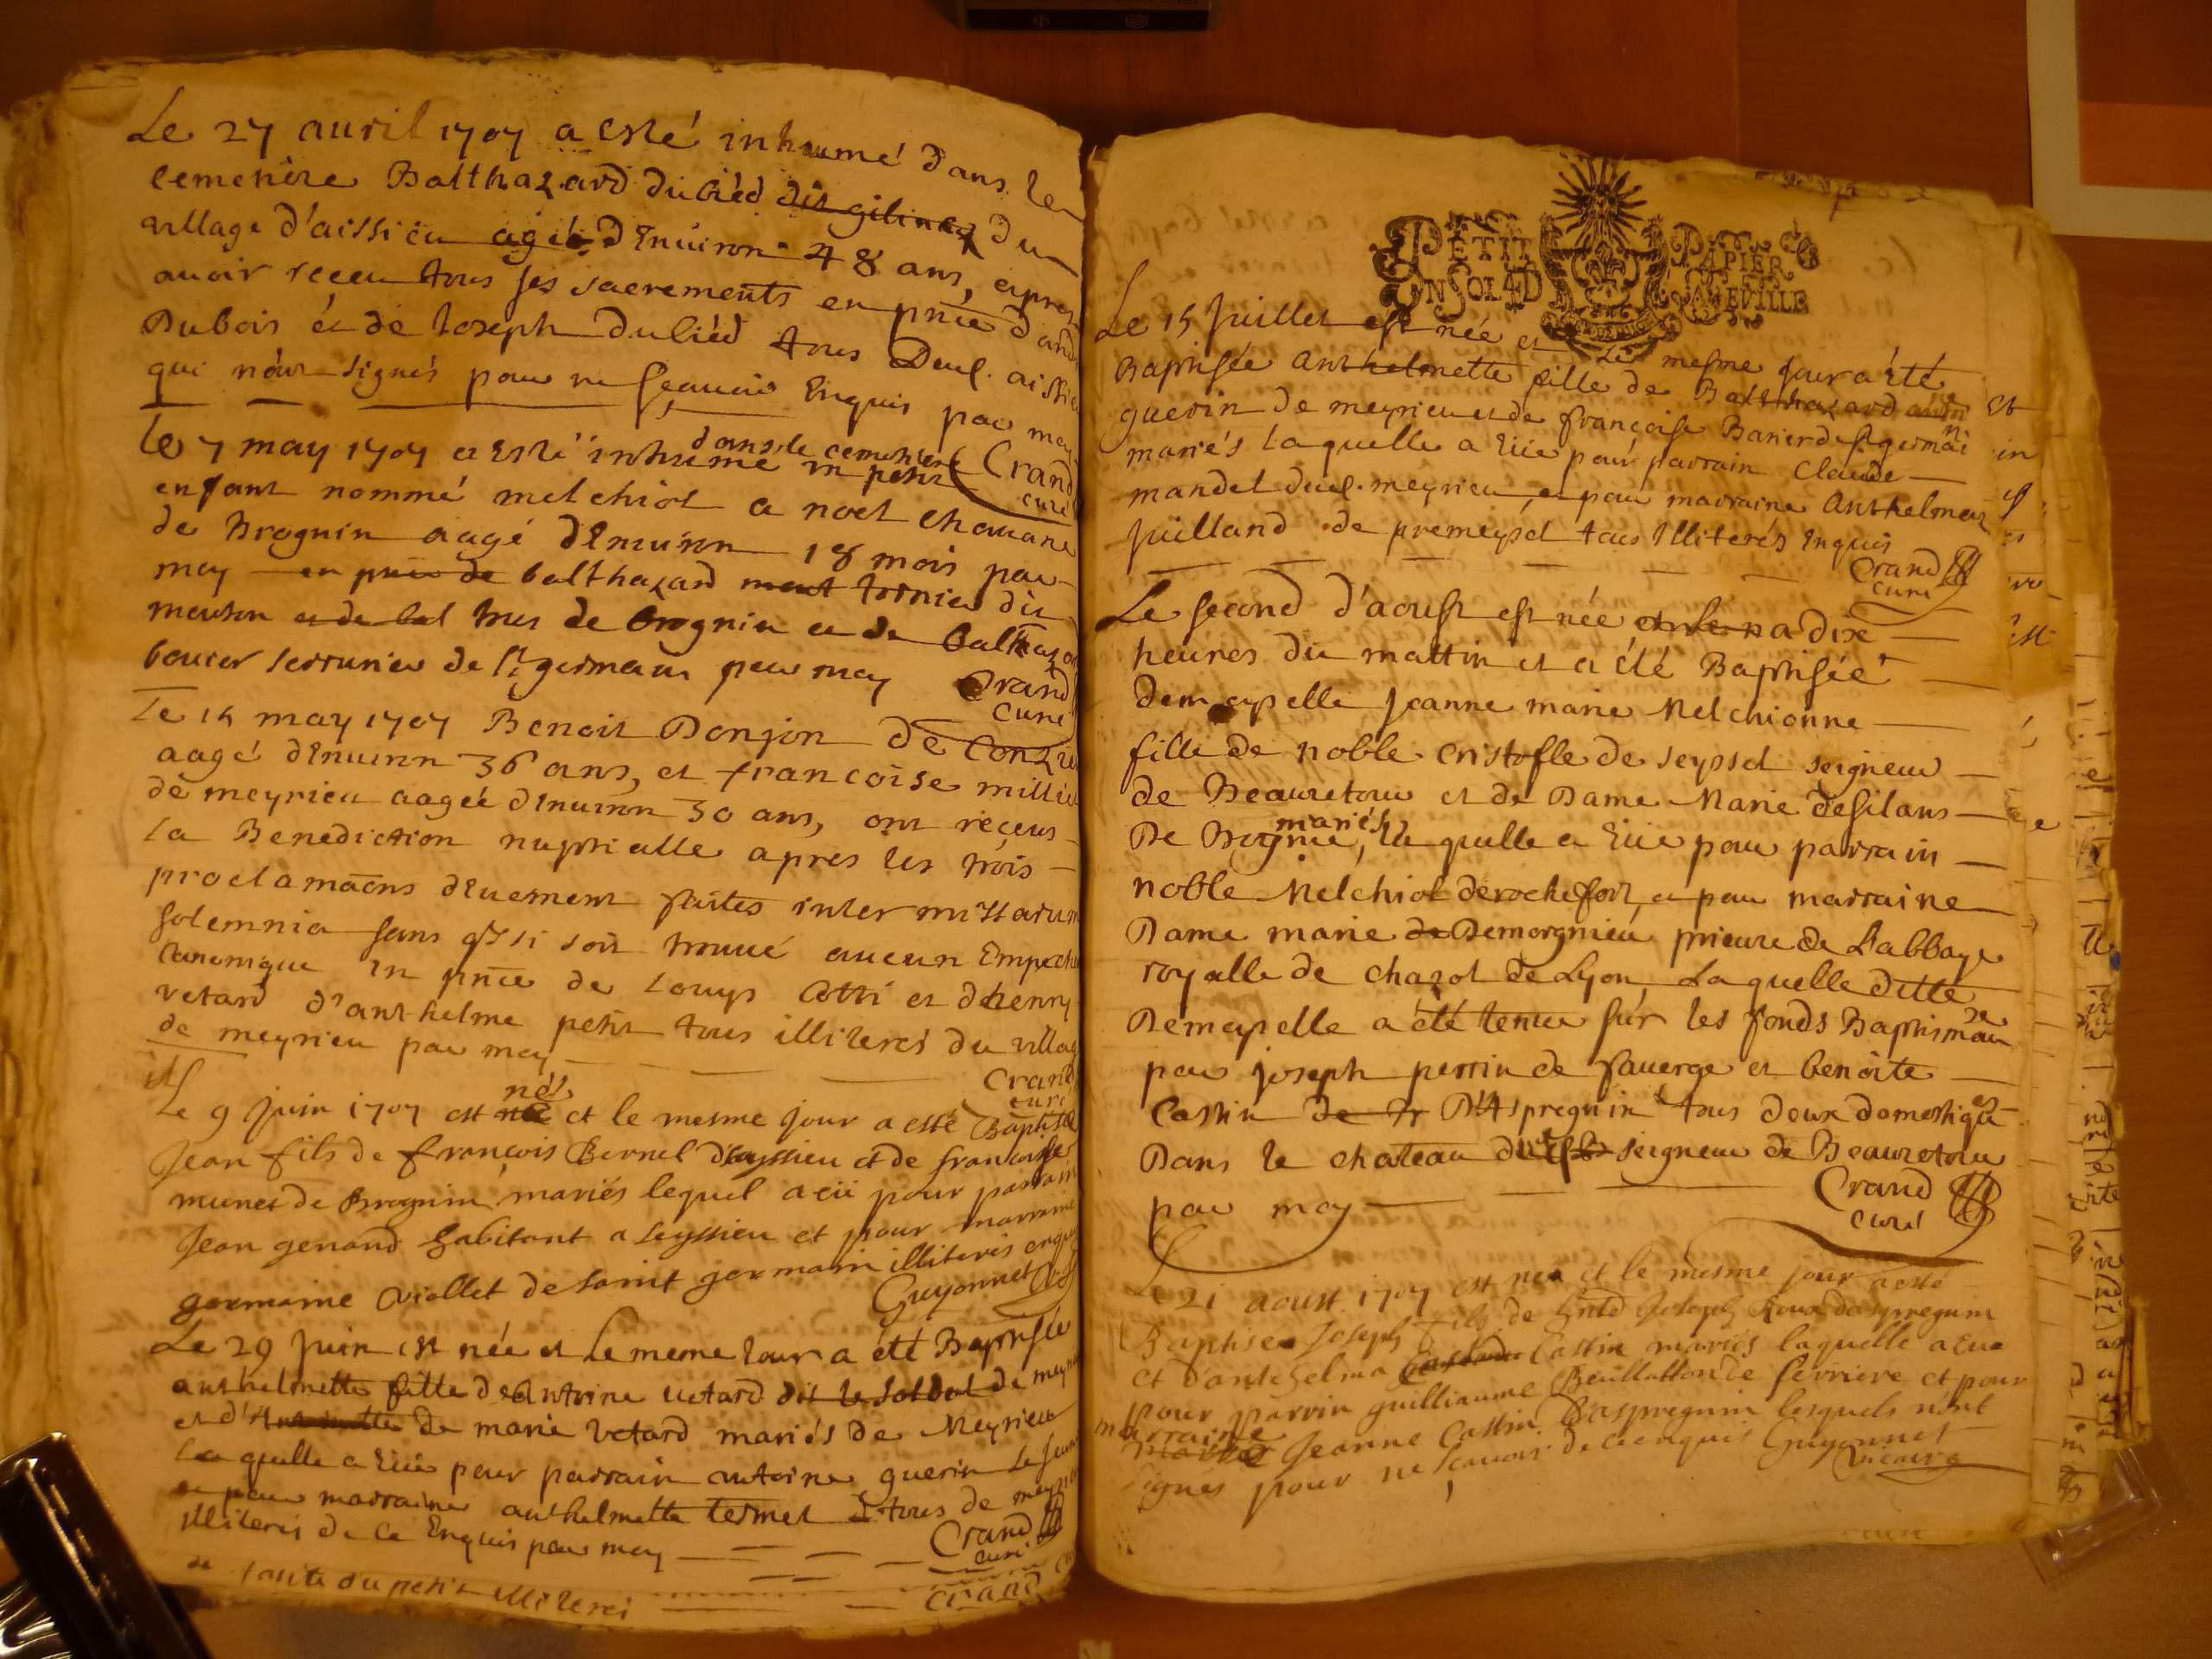 Le 27 auril 1707 a esté inhumé dans le
cemetiere Balthazard dulied dit gilinez du
village d'aissieu agéé d'enuiron 48 ans, apres
auoir receu tous ses sacrements en pnce d'and
Dubois et de Joseph dulied tous Deux. aissie
qui n'ont signés pour ne sçauoir Enquis par moy
Crand
curé
le 7 may 1707 a esté inhumé dans le cemetiere un petit
enfant nommé melchiol a noel chauane
de Brognin aagé d'Enuiron 18 mois par
moy en pnce de balthazard mont tornier du
mouton et de bal tous de brognin et de balthazar
bouuer serrurier de st germain par moy
Crand
curé
Le 15 may 1707 Benoit Donjon de Conzieu
aagé d'Enuiron 36 ans, et francoise millie
de meyrieu aagéé d'Enuiron 30 ans, ont reçeus
la Benediction nuptialle apres les trois
proclamaons dEuement faites inter missarum
solemnia sans qu'il si soit trouué aucun Empeche
Canonique en pnce de Louys Cotti et d'henry
vetard d'anthelme petit tous illiterés du villag
de meyrieu par moy
Crand
curé
Le 9 Juin 1707 est né et le mesme jour a esté Baptisé
Jean fils de françois Bernel d'eyssieu et de francoise
munet de Brognin mariés lequel a eü pour parrain
Jean genand habitant a Leyssieu et pour marraine
germaine Viollet de saint germain illiterés enquis
Guyonnet
Le 29 Juin est née et Le meme Jour a été Baptisée
anthelmette fille d'Antoine vetard dit le soldat de mey
et d' de marie vetard mariés de Meyrieu
La quelle a Eüe pour parrain antoine guerin le Jeune
et pour marraine anthelmette termet tous de mey
illiterés de ce Enquis par moy
Crand
curé
de petit illiterés
Crand
PETIT PAPIER
UN SOL 4 D LE FEUILLE
Le 15 Juillet est née et Le mesme Jour a été
Baptisée anthelmette fille de Balthazard
guerin de meyrieu et de françoise Barier de st germain
mariés Laquelle a Eüe pour parrain Claude
mandel deux. meyrieu, et pour marraine Anthelmaz
Juilland de premeysel tous Illiterés Enquis
Crand
curé
Le second d'aoust est née a dix
heures du mattin et a été Baptisée
demoyselle Jeanne marie Melchionne
fille de noble Cristofle de seyssel seigneur
de Beauretour et de Dame Marie desilans
De Brognie, mariés la quelle a Eüe pour parrain
noble Melchiol de rochefort, et pour marraine
Dame marie de Demorgnieu prieure de L'abbaye
royalle de chazot de Lyon, Laquelle ditte
Demoyselle a été tenue sur les fonds Baptismau
par joseph perrin de fauerge et benoite
Castin D'Aspregnin tous deux domestiques
Dans le chateau du seigneur de Beauretour
par moy
Crand
curé
Le 21 aoust 1707 est né et le mesme jour a esté
Baptisé Joseph fils de Joseph Roux daspregnin
et d'anthelma Castin mariés laquelle a eu
pour parrin guilliaume Beullatton de ferriere et pour
marraine Jeanne Castin Daspregnin lesquels nont
signés pour ne scauoir de ce enquis Guyonnet
vicaire